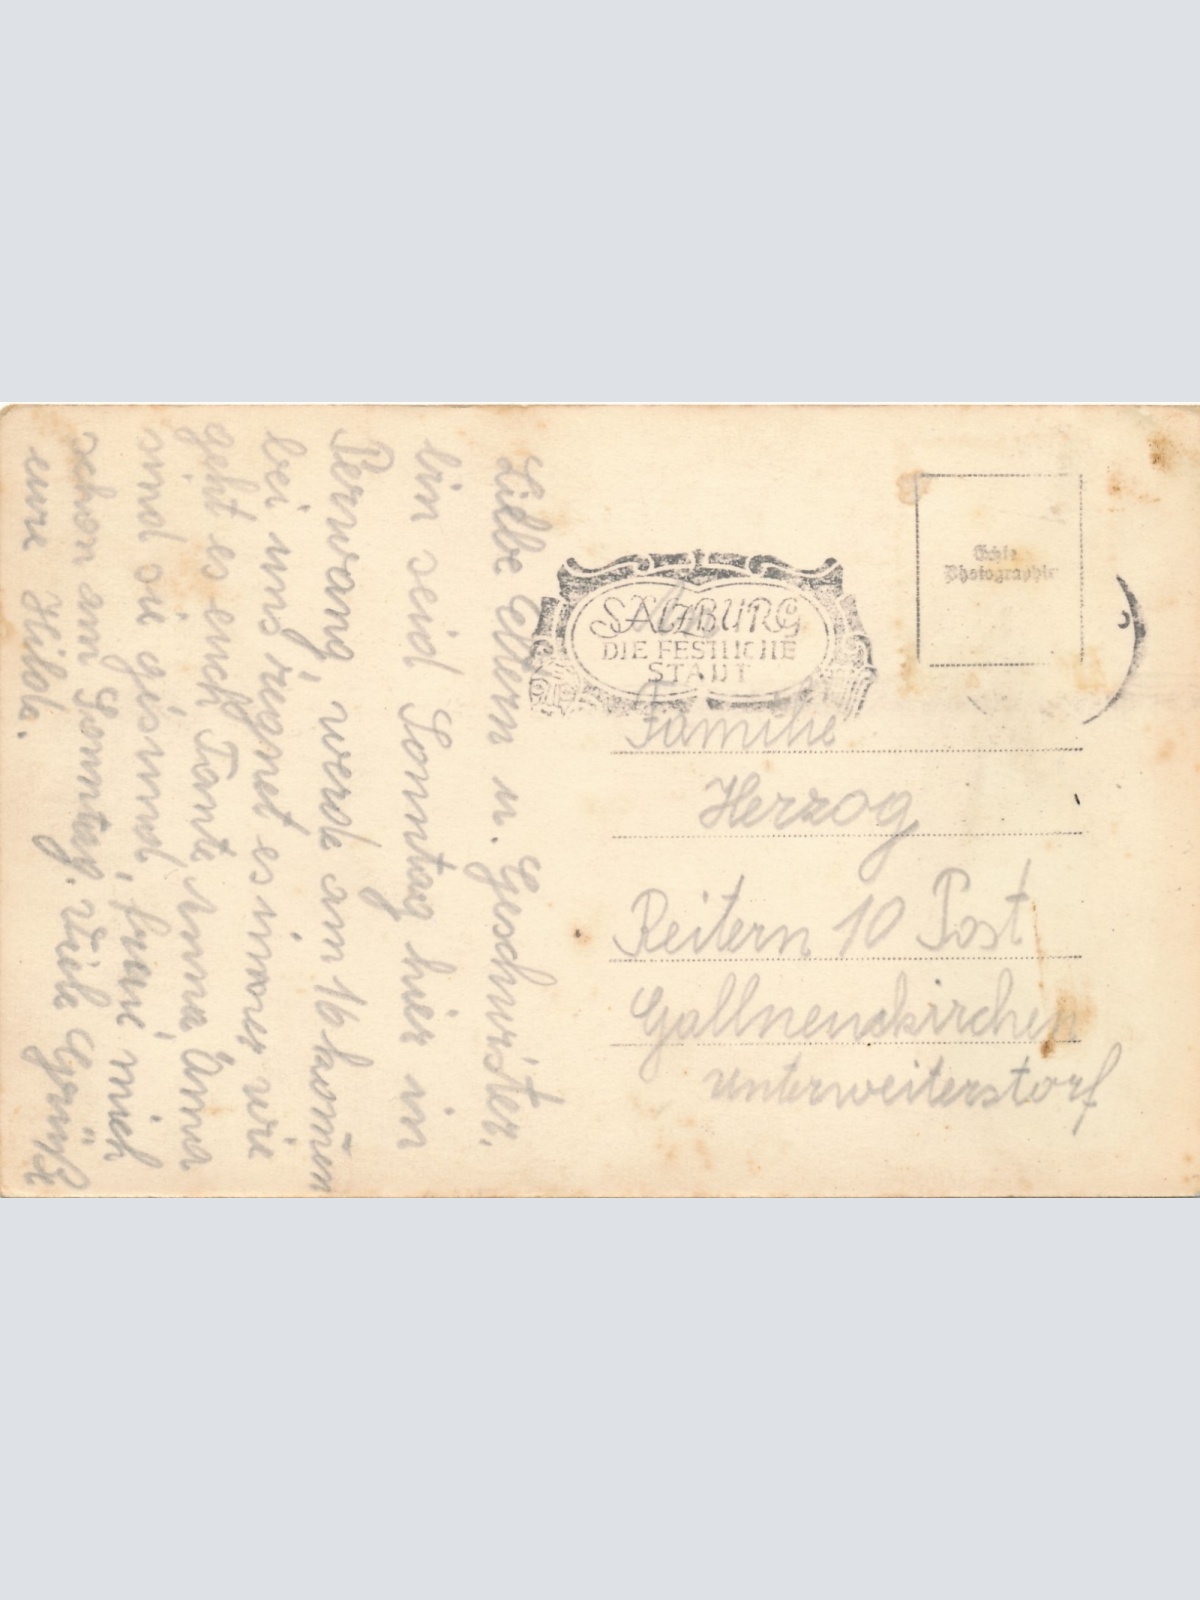 Liebe Eltern u. Geschwister.
bin seid Sonntag hier in
Perwang, werde am 16 komen
bei uns regnet es imer wie
geht es euch, Tante Anna
sind sie gesund, freue mich
schon am Sonntag. Viele Grüße
eure Hilda.
Echte
Photographie
SALZBURG
DIE FESTLICHE
STADT
Familie
Herzog
Reitern 10 Post
Gallneukirchen
Unterweiterstorf